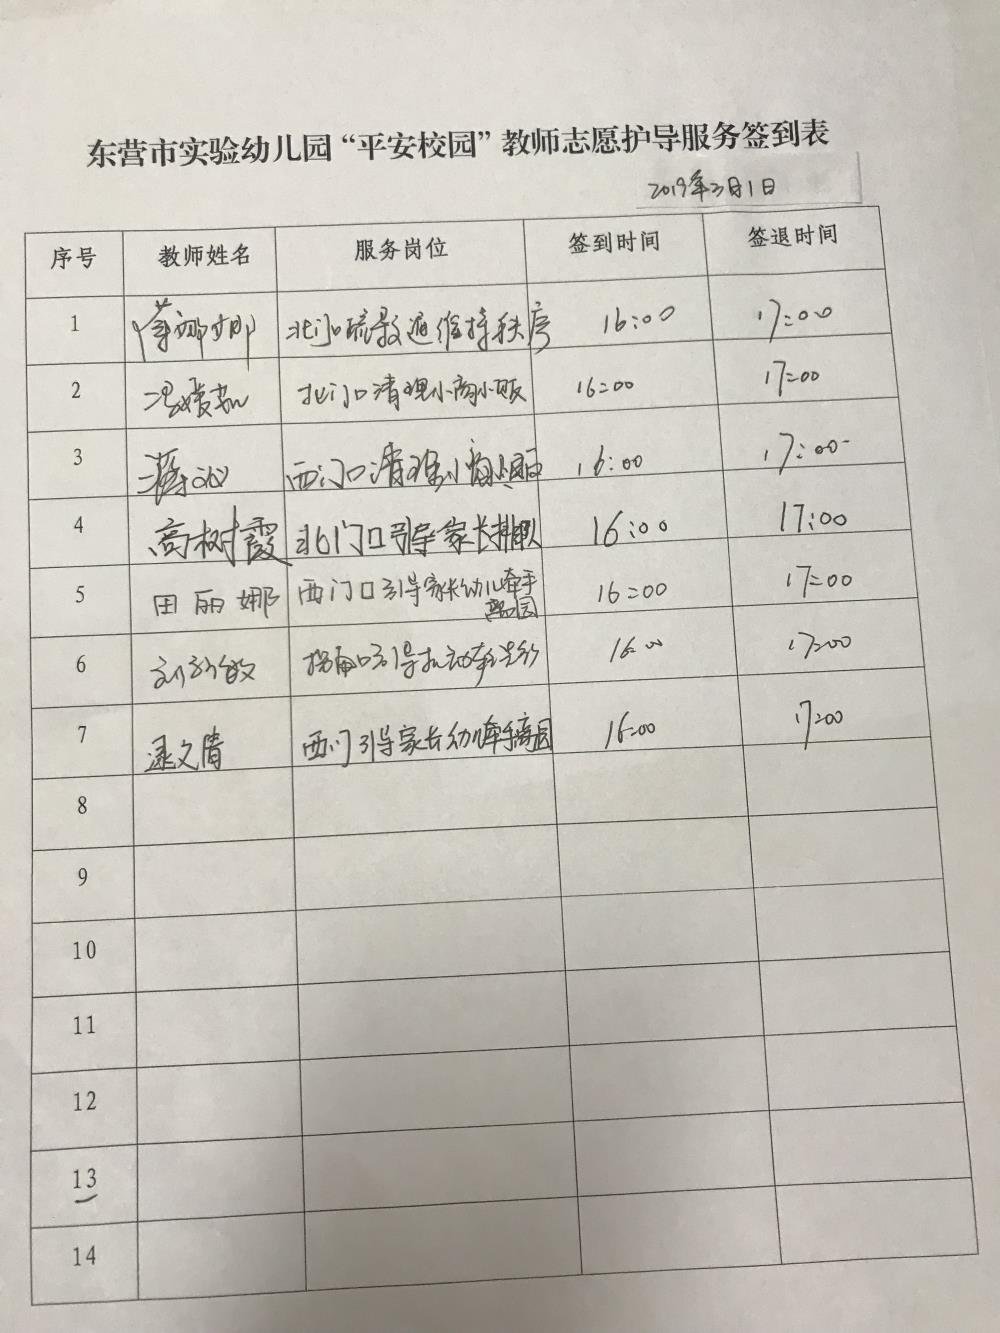 东营市实验幼儿园“平安校园”教师志愿护导服务签到表
2019年3月1日
序号 教师姓名 服务岗位 签到时间 签退时间
1 娜娜 北门疏散通维持秩序 16:00 17:00
2 北门口清理小商小贩 16:00 17:00
3 西门口清理小商小贩 16:00 17:00
4 高树霞 北门口引导家长排队 16:00 17:00
5 田丽娜 西门口引导家长幼儿牵手离园 16:00 17:00
6 拐角口引导 16:00 17:00
7 逯文倩 西门引导家长幼儿牵手离园 16:00 17:00
8
9
10
11
12
13
14